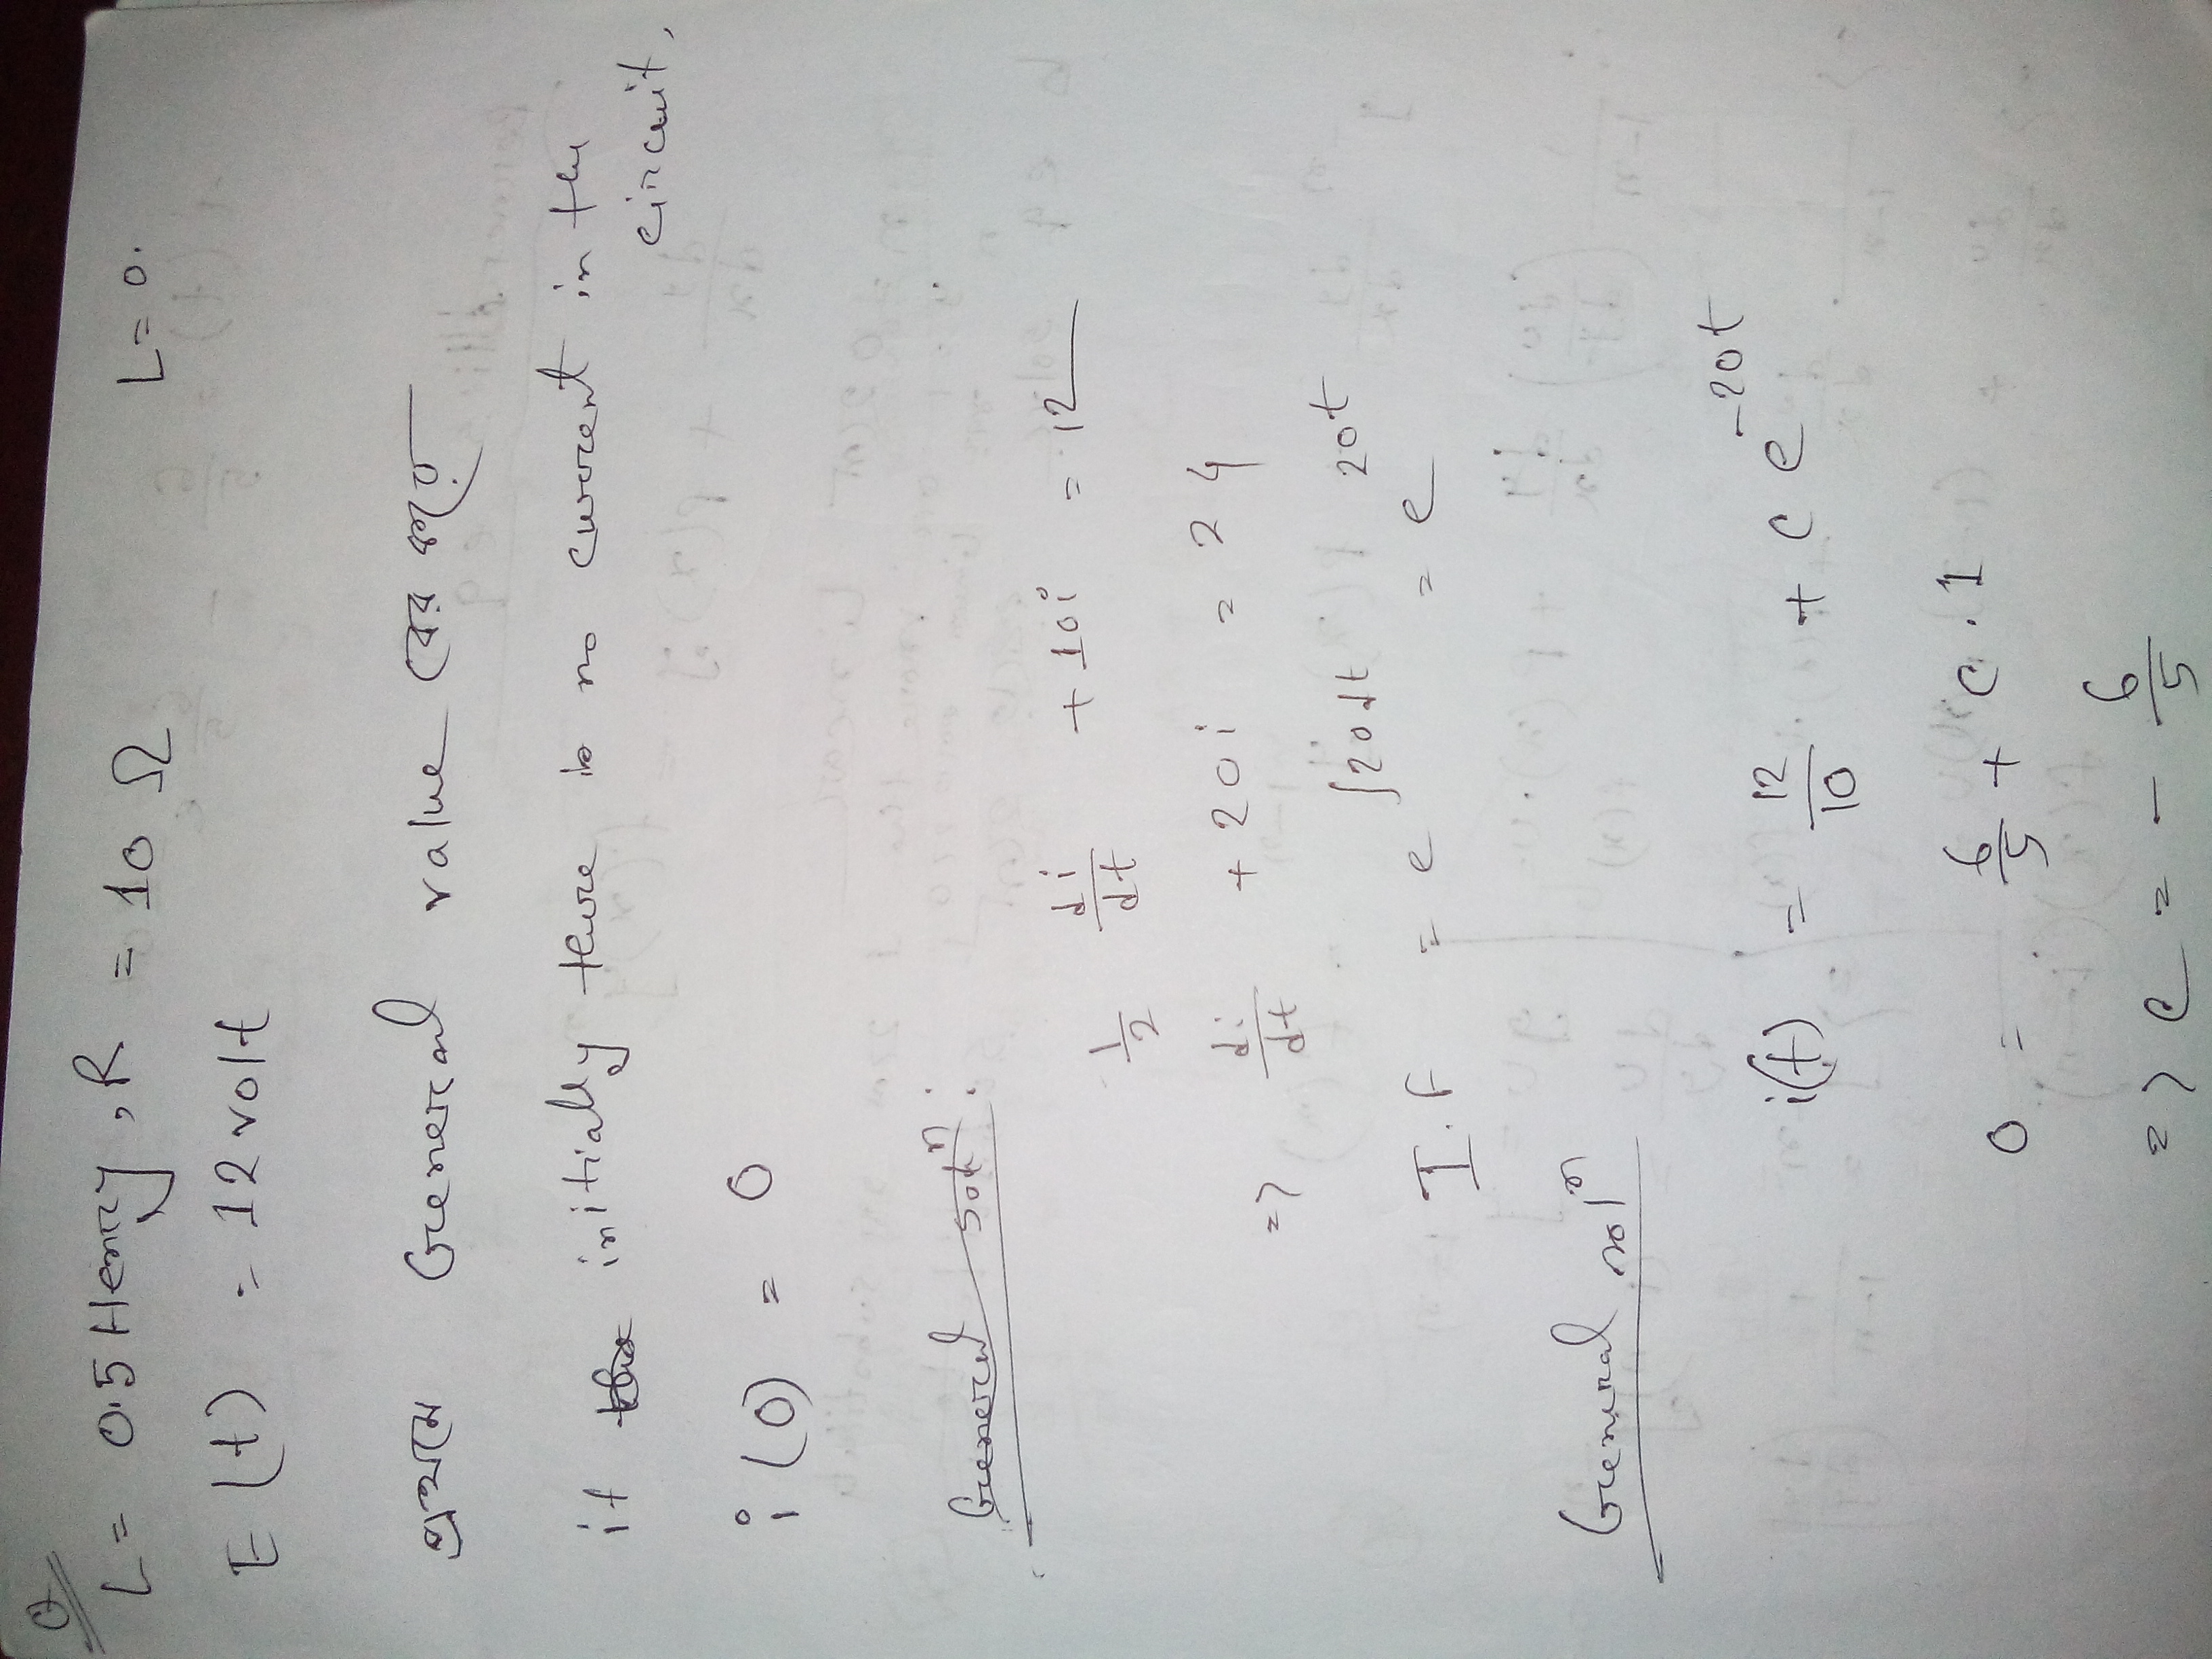 Q
L = 0.5 Henry, R = 10 Ω L = 0.
E(t) = 12 volt
প্রথমে General value বের করব
if initially there is no current in the circuit,
i(0) = 0
General solⁿ:
1/2 di/dt + 10i = 12
=> di/dt + 20i = 24
I.F = e^∫20dt = e^20t
General solⁿ
i(t) = 12/10 + c e^-20t
0 = 6/5 + c.1
=> c = - 6/5